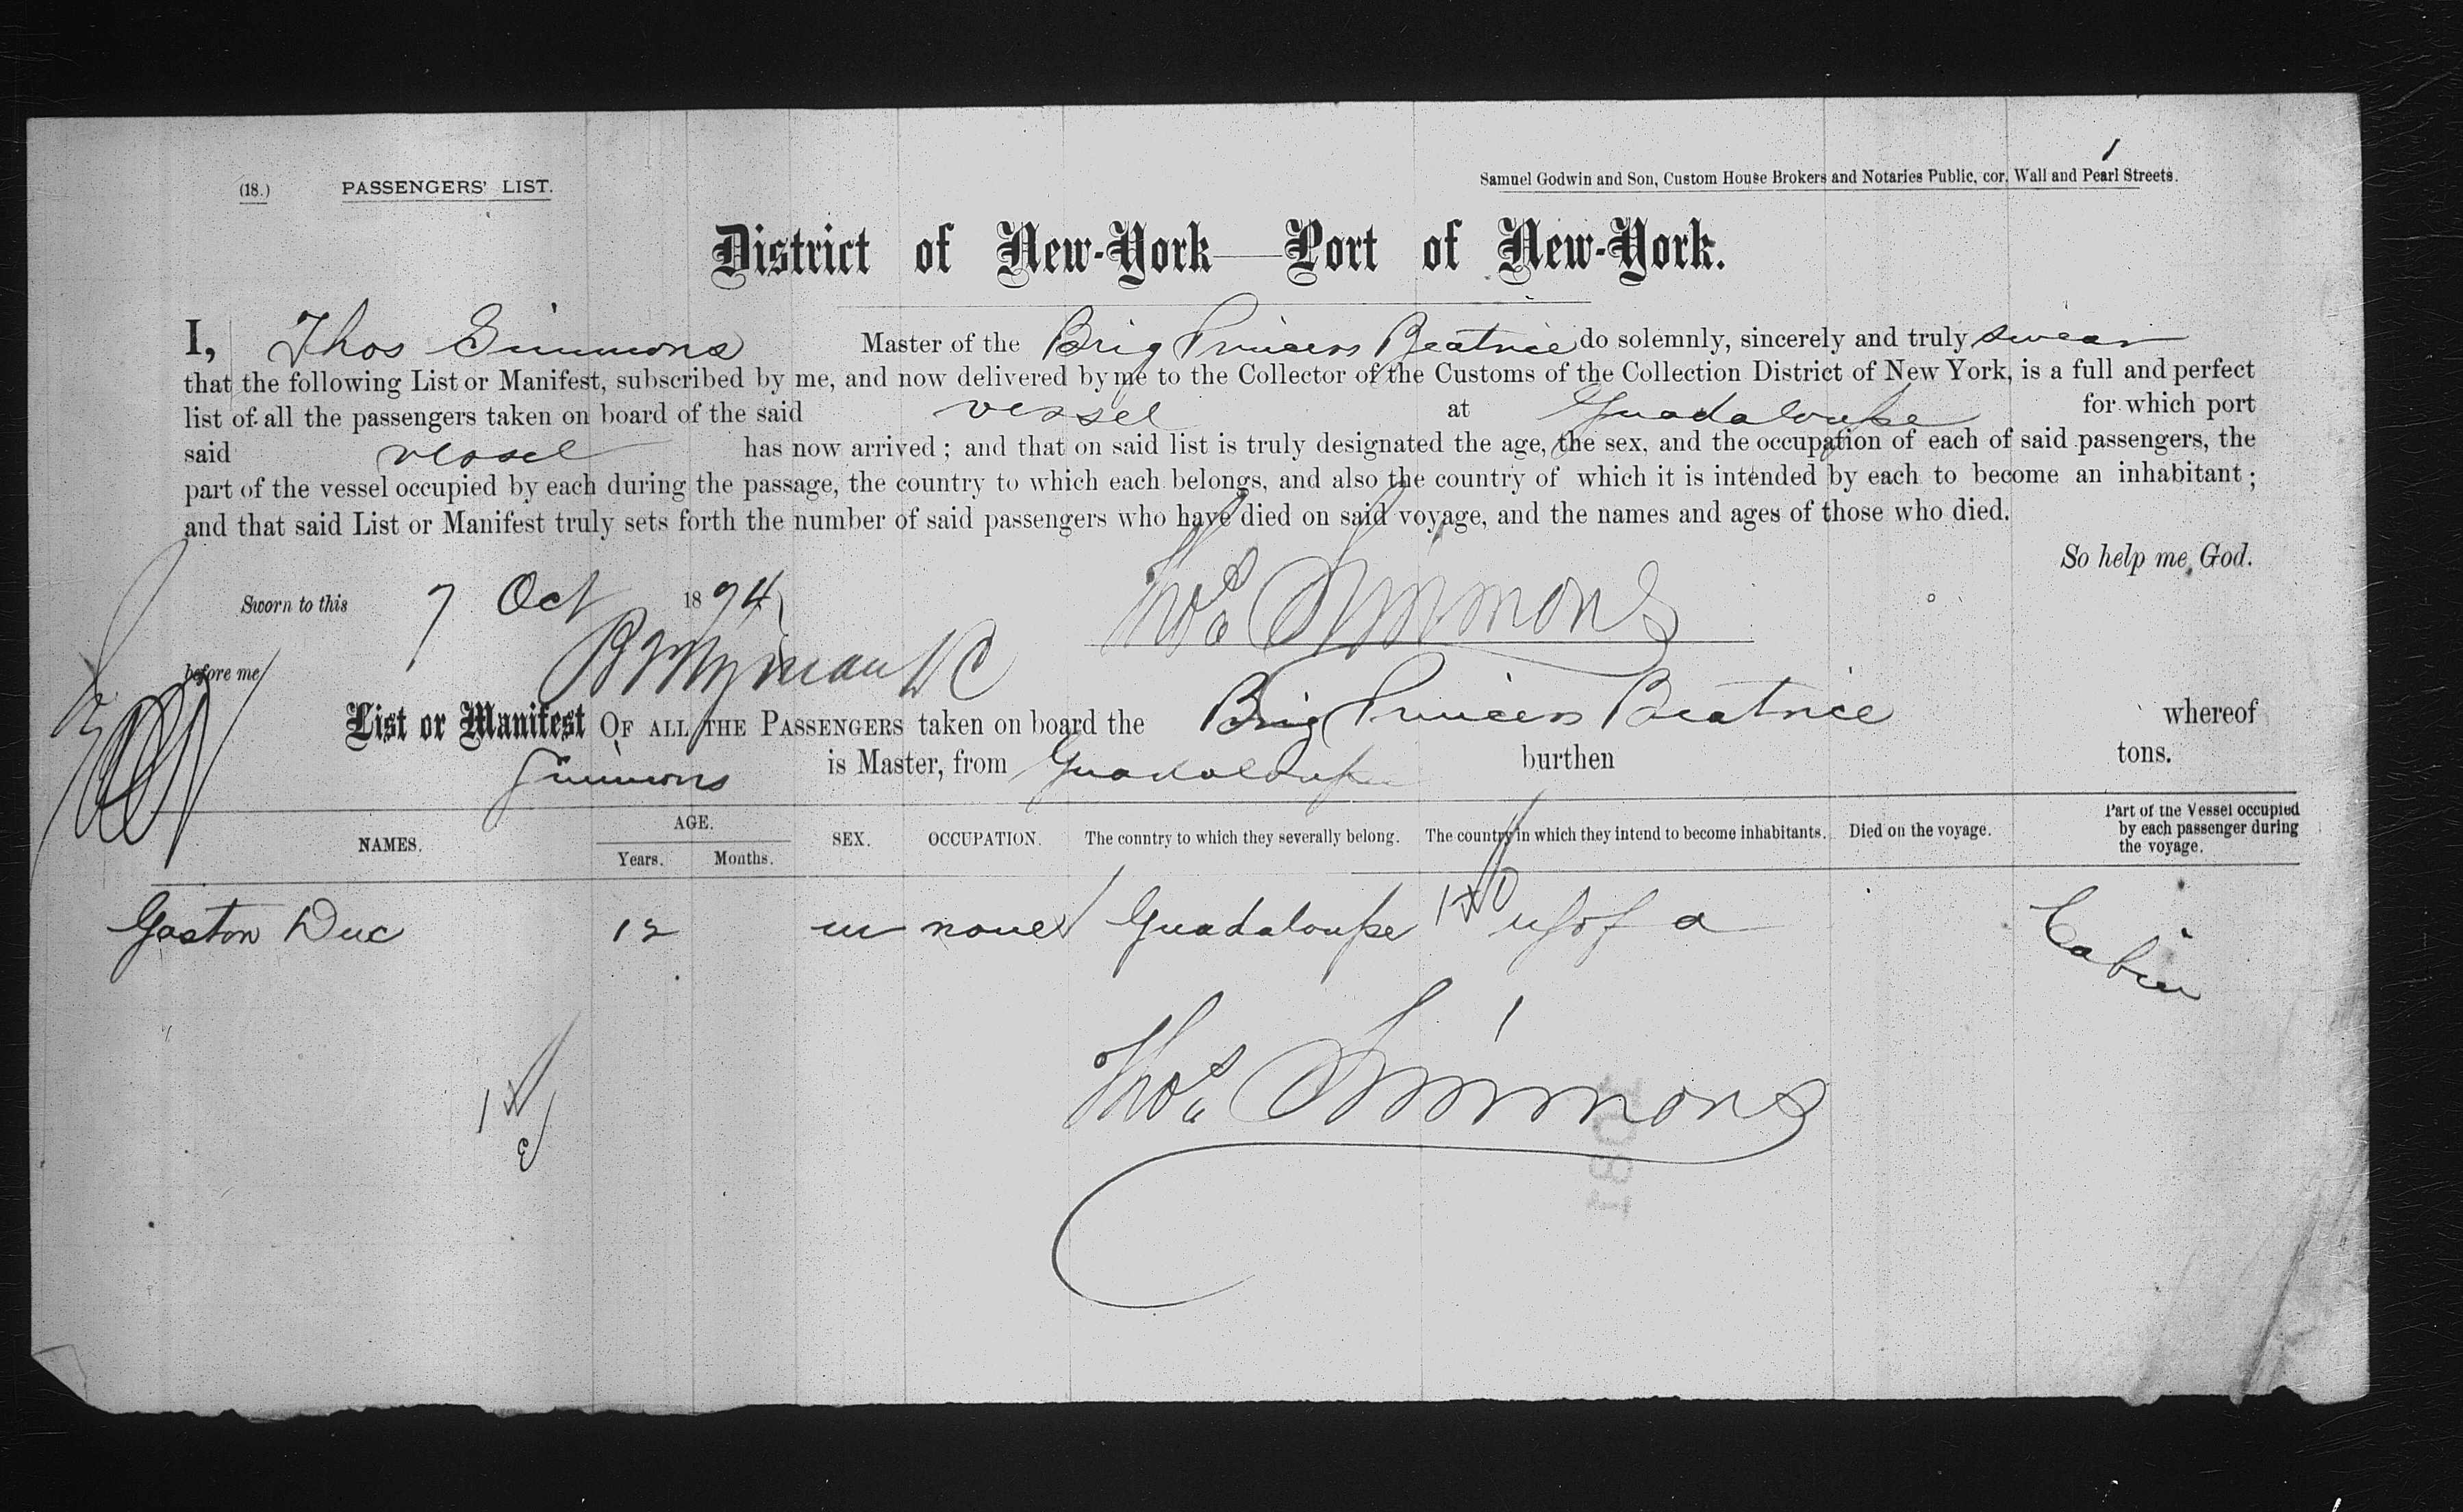 1
(18.) PASSENGERS' LIST. Samuel Godwin and Son, Custom House Brokers and Notaries Public, cor. Wall and Pearl Streets.
District of New-York—Port of New-York.
I, Thos Simmons Master of the Brig Princess Beatrice do solemnly, sincerely and truly swear
that the following List or Manifest, subscribed by me, and now delivered by me to the Collector of the Customs of the Collection District of New York, is a full and perfect
list of all the passengers taken on board of the said vessel at Guadaloupe for which port
said vessel has now arrived; and that on said list is truly designated the age, the sex, and the occupation of each of said passengers, the
part of the vessel occupied by each during the passage, the country to which each belongs, and also the country of which it is intended by each to become an inhabitant;
and that said List or Manifest truly sets forth the number of said passengers who have died on said voyage, and the names and ages of those who died.
So help me God.
Sworn to this 7 Oct 1874 Thos Simmons
before me
List or Manifest OF ALL THE PASSENGERS taken on board the Brig Princess Beatrice whereof
Simmons is Master, from Guadaloupe burthen tons.
NAMES. AGE. Years. Months. SEX. OCCUPATION. The country to which they severally belong. The country in which they intend to become inhabitants. Died on the voyage. Part of the Vessel occupied by each passenger during the voyage.
Gaston Duc 12 m none Guadaloupe U S of a Cabin
Thos Simmons
1801